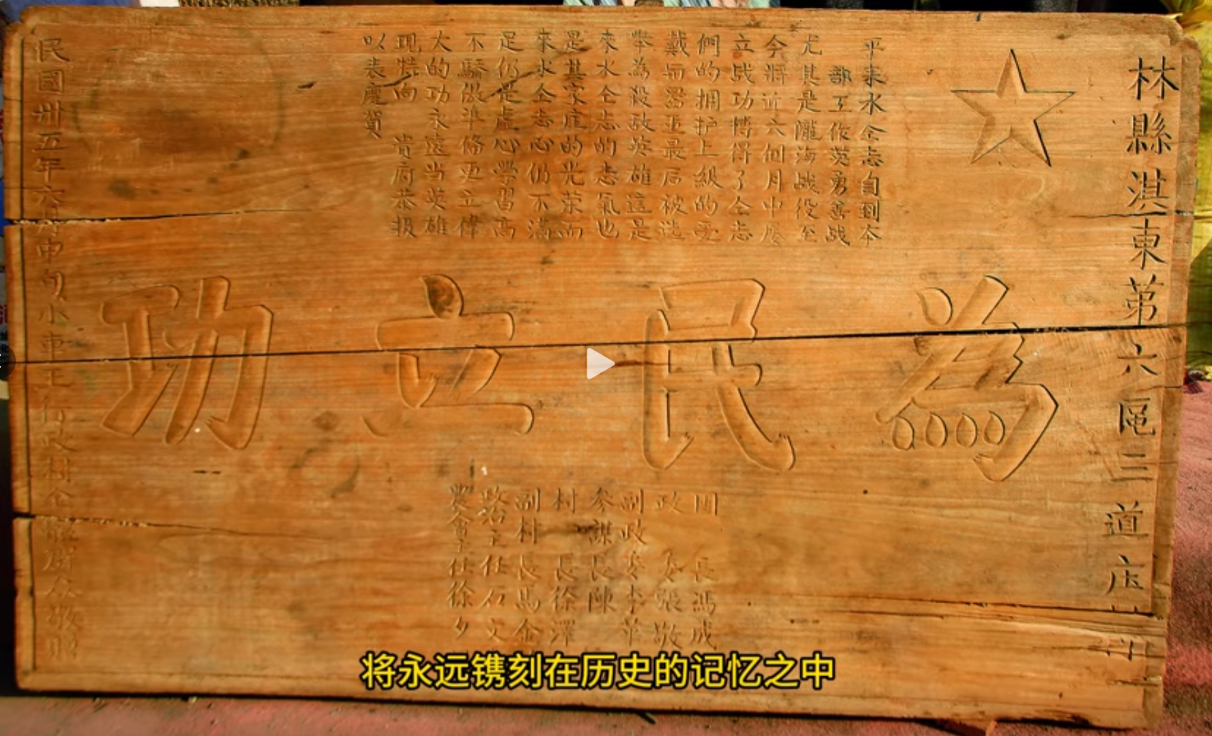 林縣淇東第六區三道
平来水仝志自到本
部工作英勇善战
尤其是隴海战役至
今將近六個月中屡
立战功博得了仝志
們的拥护上級的爱
戴而器重最后被选
舉為殺敌英雄這是
來水仝志的志氣也
是其家庭的光荣而
來水仝志心仍不滿
足仍是虚心學習高
不驕傲準俻更立偉
大的功永遠当英雄
現特向 貴府恭报
以表慶賀
為民立功
团 長馮成
政 委張敬
副政委李華
参謀長陳
村 長徐澤
副村長馬金
政治主任石文
農會主任徐夕
民國卅五年六月中旬小車王行政村仝體群众敬贈
将永远镌刻在历史的记忆之中